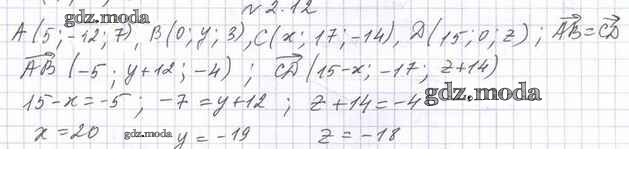 №2.12
gdz.moda
A(5; -12; 7), B(0; y; 3), C(x; 17; -14), D(15; 0; z); AB⃗=CD⃗
AB⃗ (-5; y+12; -4); CD⃗ (15-x; -17; z+14)
15-x=-5; -7=y+12; z+14=-4 gdz.moda
x=20 gdz.moda y=-19 z=-18